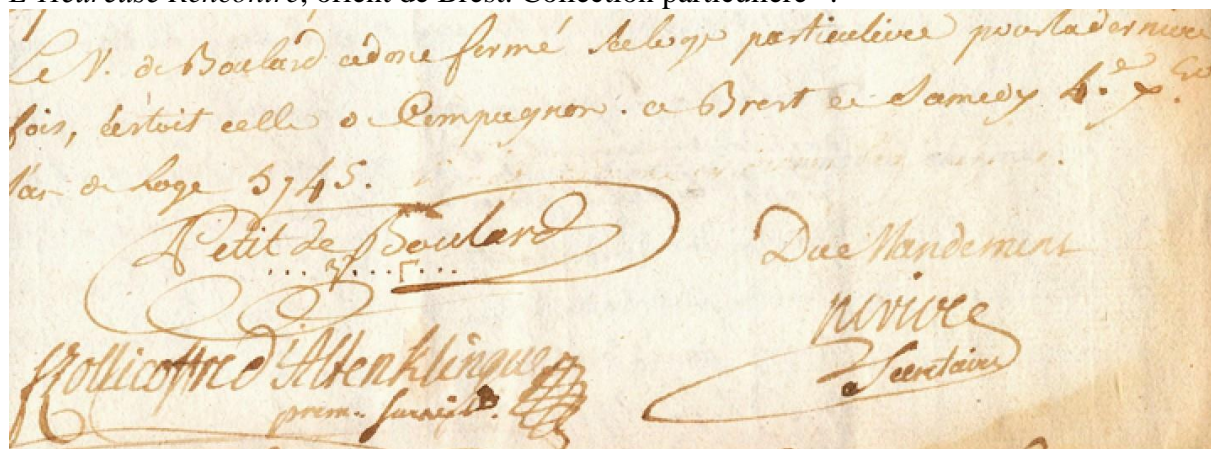 L'Heureuse Rencontre, orient de Brest. Collection particulière
Le V. de Boulard a donc fermé sa loge particuliere pour la derniere
fois, c'estoit celle de Compagnon. a Brest ce Samedy 4.e 7.
l'an de Loge 5745.
Petit de Boulard
Du Mandement
riviere
Secretaire
Zollicoffre d'Altenklingue
prem. surveill.